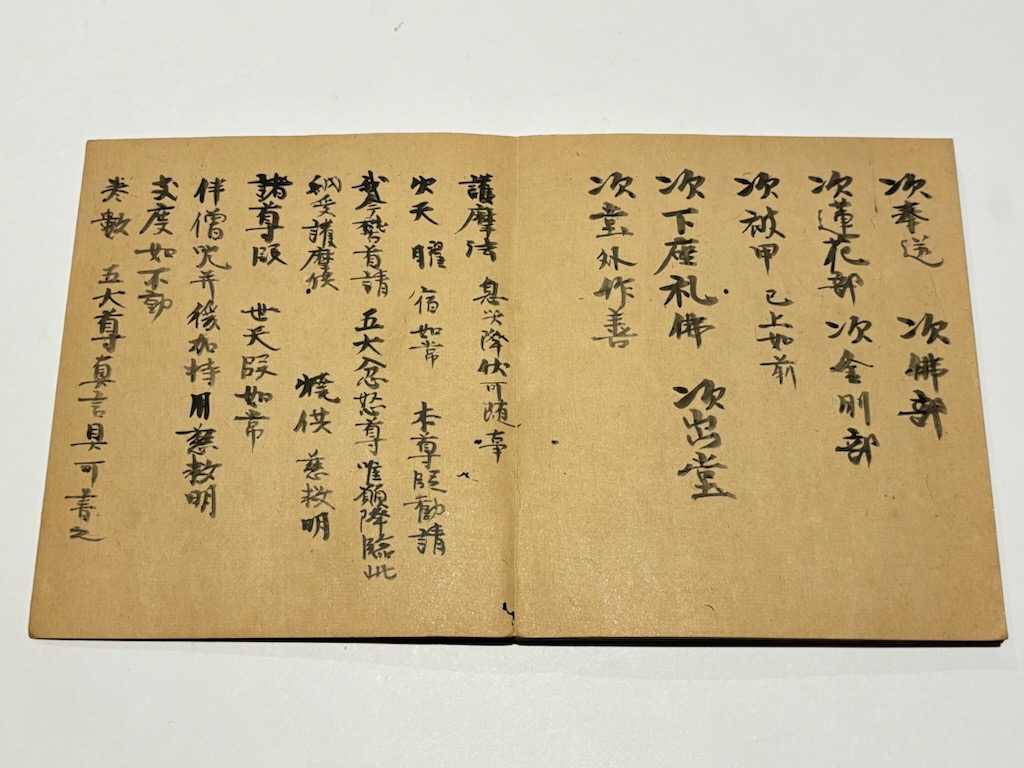 次奉送 次佛部
次蓮花部 次金剛部
次被甲 已上如前
次下座礼佛 次出堂
次堂外作善
護摩法 息災降伏可随事
火天 曜宿如常 本尊段勧請
我今誓首請 五大忿怒尊 唯願降臨此
納受護摩供 燒供 慈救明
諸尊段 世天段如常
伴僧呪并後加持用慈救明
支度如不動
巻數 五大尊真言具可書之